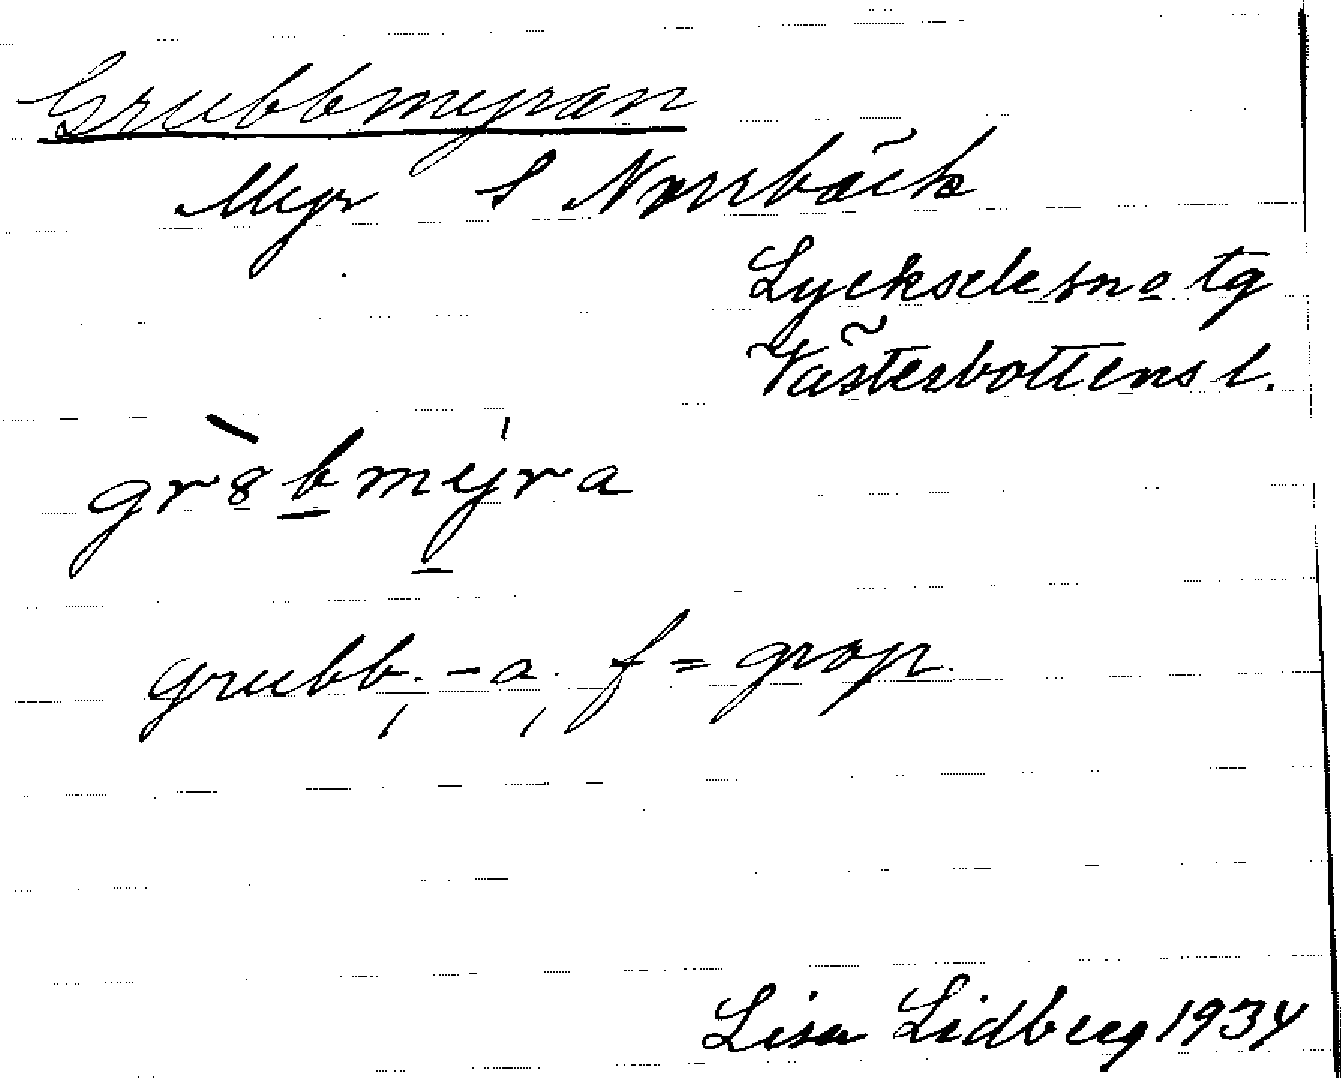 Grubbmyran
Myr S Norrbäck
Lycksele sn o tg
Västerbottens l.
gr8̀bmýra
grubb, -a, f = grop.
Lisa Lidberg 1934